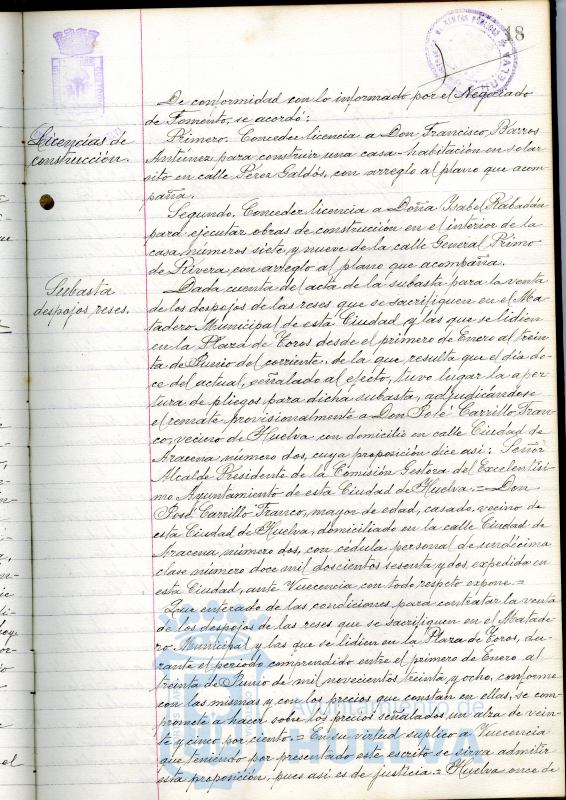 18
De conformidad con lo informado por el Negociado
de Fomento, se acordó:
Licencias de
construcción.
Primero. Conceder licencia a Don Francisco Barros
Antúnez para construir una casa-habitación en solar
sito en calle Pérez Galdós, con arreglo al plano que acom-
paña.
Segundo. Conceder licencia a Doña Isabel Rabadán
para ejecutar obras de construcción en el interior de la
casa números siete y nueve de la calle General Primo
de Rivera, con arreglo al plano que acompaña.
Subasta
despojos reses.
Dada cuenta del acta de la subasta para la venta
de los despojos de las reses que se sacrifiquen en el Ma-
tadero Municipal de esta Ciudad y las que se lidien
en la Plaza de Toros desde el primero de Enero al trein-
ta de Junio del corriente, de la que resulta que el dia do-
ce del actual, señalado al efecto, tuvo lugar la aper-
tura de pliegos para dicha subasta, adjudicándose
el remate provisionalmente a Don José Carrillo Fran-
co, vecino de Huelva con domicilio en calle Ciudad de
Aracena número dos, cuya proposición dice asi: Señor
Alcalde Presidente de la Comisión Gestora del Excelentísi-
mo Ayuntamiento de esta Ciudad de Huelva.= Don
José Carrillo Franco, mayor de edad, casado, vecino de
esta Ciudad de Huelva, domiciliado en la calle Ciudad de
Aracena, número dos, con cédula personal de undécima
clase número doce mil doscientos sesenta y dos expedida en
esta Ciudad, ante Vuecencia con todo respeto expone.=
Que enterado de las condiciones para contratar la venta
de los despojos de las reses que se sacrifiquen en el Matade-
ro Municipal y las que se lidien en la Plaza de Toros, du-
rante el periodo comprendido entre el primero de Enero al
treinta de Junio de mil novecientos treinta y ocho, conforme
con las mismas y con los precios que constan en ellas, se com-
promete a hacer sobre los precios señalados un alza de vein-
te y cinco por ciento.= En su virtud suplico a Vuecencia
que teniendo por presentado este escrito se sirva admitir
esta proposición, pues asi es de justicia.= Huelva once de
Ayuntamiento de
HUELVA